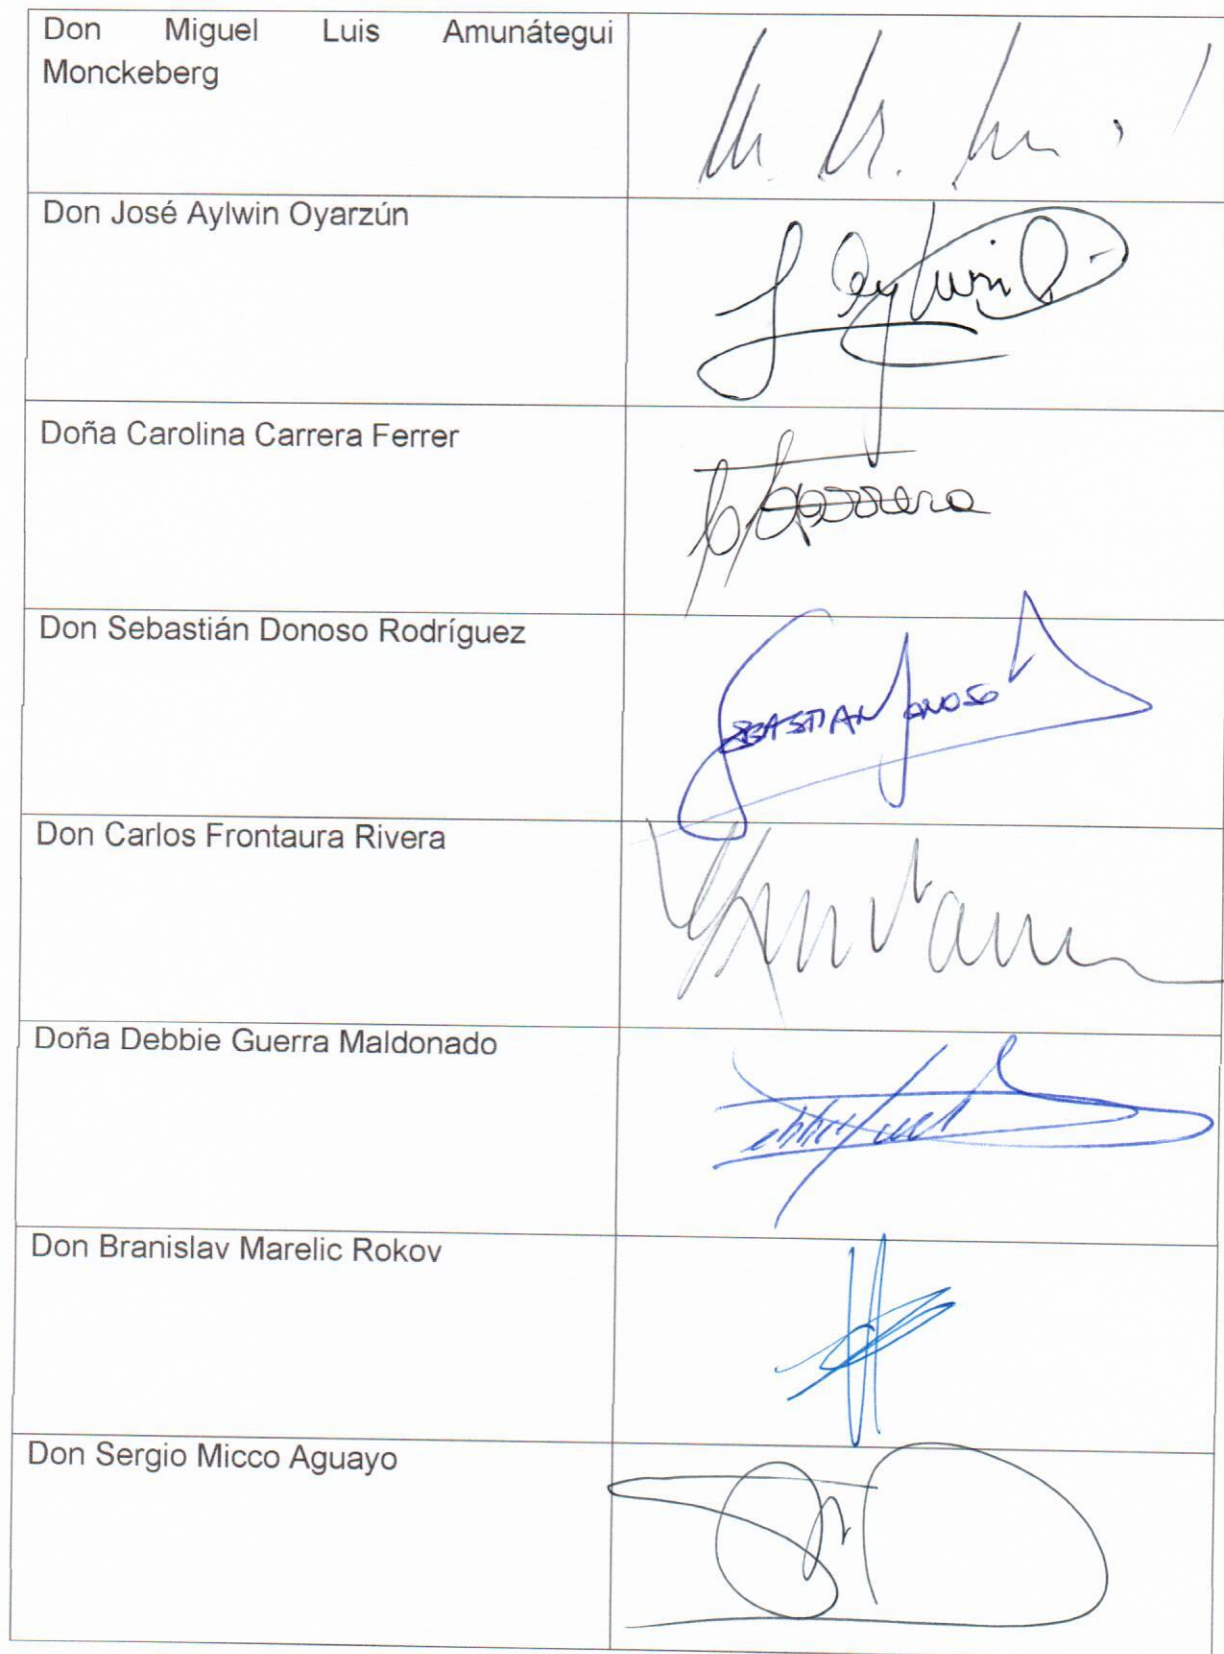 Don Miguel Luis Amunátegui
Monckeberg
Don José Aylwin Oyarzún
Doña Carolina Carrera Ferrer
Don Sebastián Donoso Rodríguez
SEBASTIAN DONOSO
Don Carlos Frontaura Rivera
Doña Debbie Guerra Maldonado
Don Branislav Marelic Rokov
Don Sergio Micco Aguayo